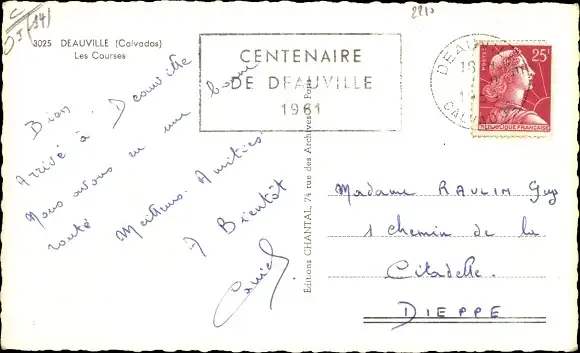 2210
3025 DEAUVILLE (Calvados)
Les Courses
CENTENAIRE
DE DEAUVILLE
1961
DEAUVILLE
18
CALVADOS
POSTES
25F
REPUBLIQUE FRANÇAISE
Bien
Arrivé à Deauville
Nous avons eu une bonne
route
Meilleures Amitiés
A Bientôt
Editions CHANTAL, 74 rue des Archives - Paris
Madame RAULIN Guy
1 chemin de la
Citadelle.
DIEPPE